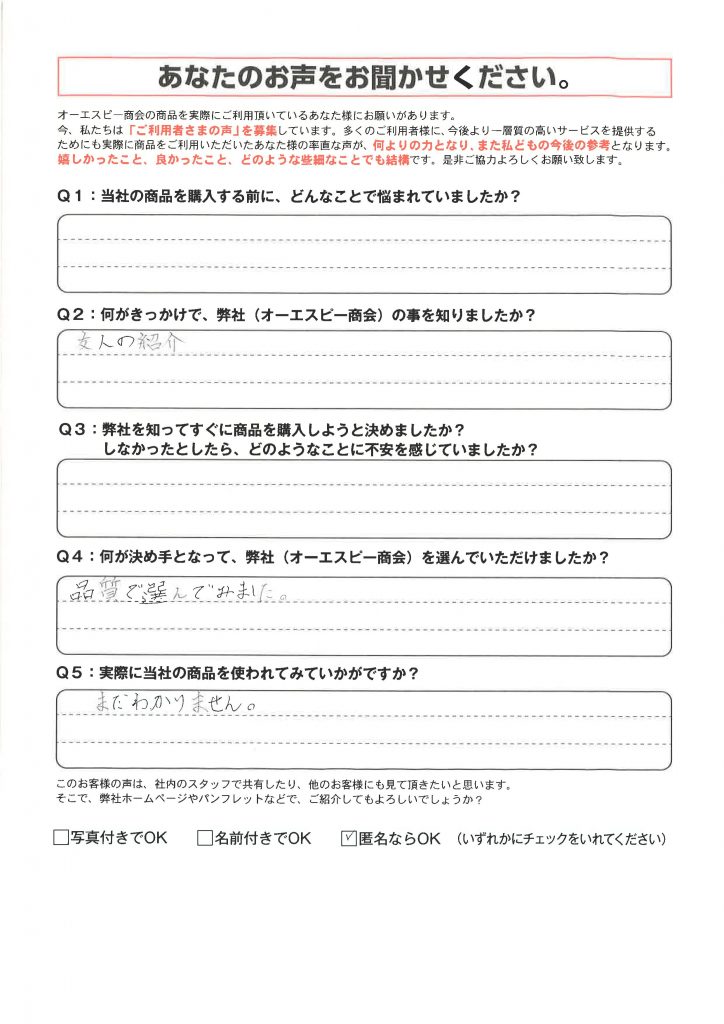 あなたのお声をお聞かせください。
オーエスピー商会の商品を実際にご利用頂いているあなた様にお願いがあります。
今、私たちは「ご利用者さまの声」を募集しています。多くのご利用者様に、今後より一層質の高いサービスを提供する
ためにも実際に商品をご利用いただいたあなた様の率直な声が、何よりの力となり、また私どもの今後の参考となります。
嬉しかったこと、良かったこと、どのような些細なことでも結構です。是非ご協力よろしくお願い致します。
Q1：当社の商品を購入する前に、どんなことで悩まれていましたか？
Q2：何がきっかけで、弊社（オーエスピー商会）の事を知りましたか？
友人の紹介
Q3：弊社を知ってすぐに商品を購入しようと決めましたか？
しなかったとしたら、どのようなことに不安を感じていましたか？
Q4：何が決め手となって、弊社（オーエスピー商会）を選んでいただけましたか？
品質で選んでみました。
Q5：実際に当社の商品を使われてみていかがですか？
まだわかりません。
このお客様の声は、社内のスタッフで共有したり、他のお客様にも見て頂きたいと思います。
そこで、弊社ホームページやパンフレットなどで、ご紹介してもよろしいでしょうか？
□写真付きでOK □名前付きでOK ☑匿名ならOK （いずれかにチェックをいれてください）